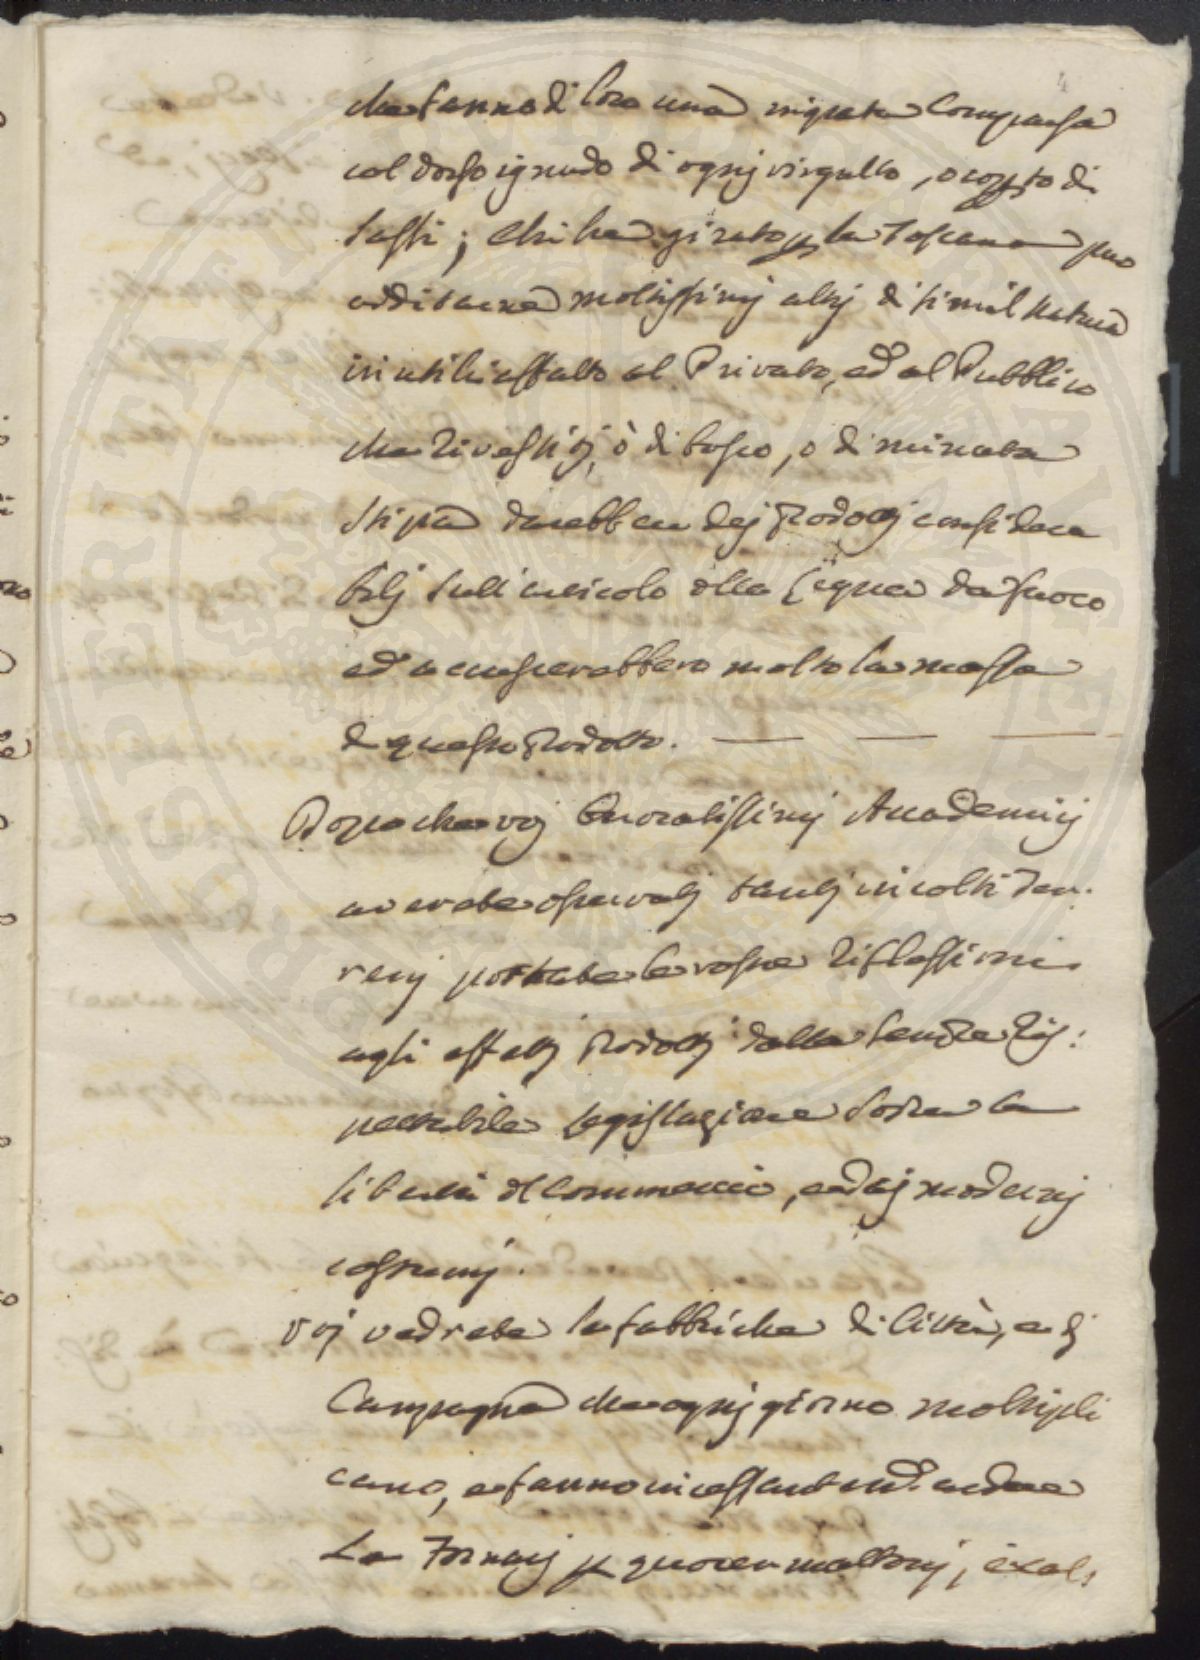 che fanno di loro una ingrata Comparsa
col dorso ignudo di ognj virgulto, o coperto di
sassi; chi ha girato p la Toscana puo
additarne moltissimj altrj di simil natura
inutili affatto al Privato, ed al Pubblico
che rivestitj, ò di bosco, o di minuta
stipa darebbero dej Prodottj considera
bilj sull'articolo della Legna da fuoco
ed accrescerebbero molto la massa
di questo Prodotto.
Dopo che voj Onoratissimj Accademicj
averete osservatj tantj incolti ter-
renj portate le vostre riflessioni
agli effettj Prodottj dalla sempre ris:
pettabile Legislazione sopra la
libertà del Commercio, e daj modernj
costumj.
Voj vedrete le fabbriche di Città, e dj
Campagna che ognj giorno moltipli
cano, e fanno incessantem. ardere
Le Fornacj p quocer mattonj, e cal-